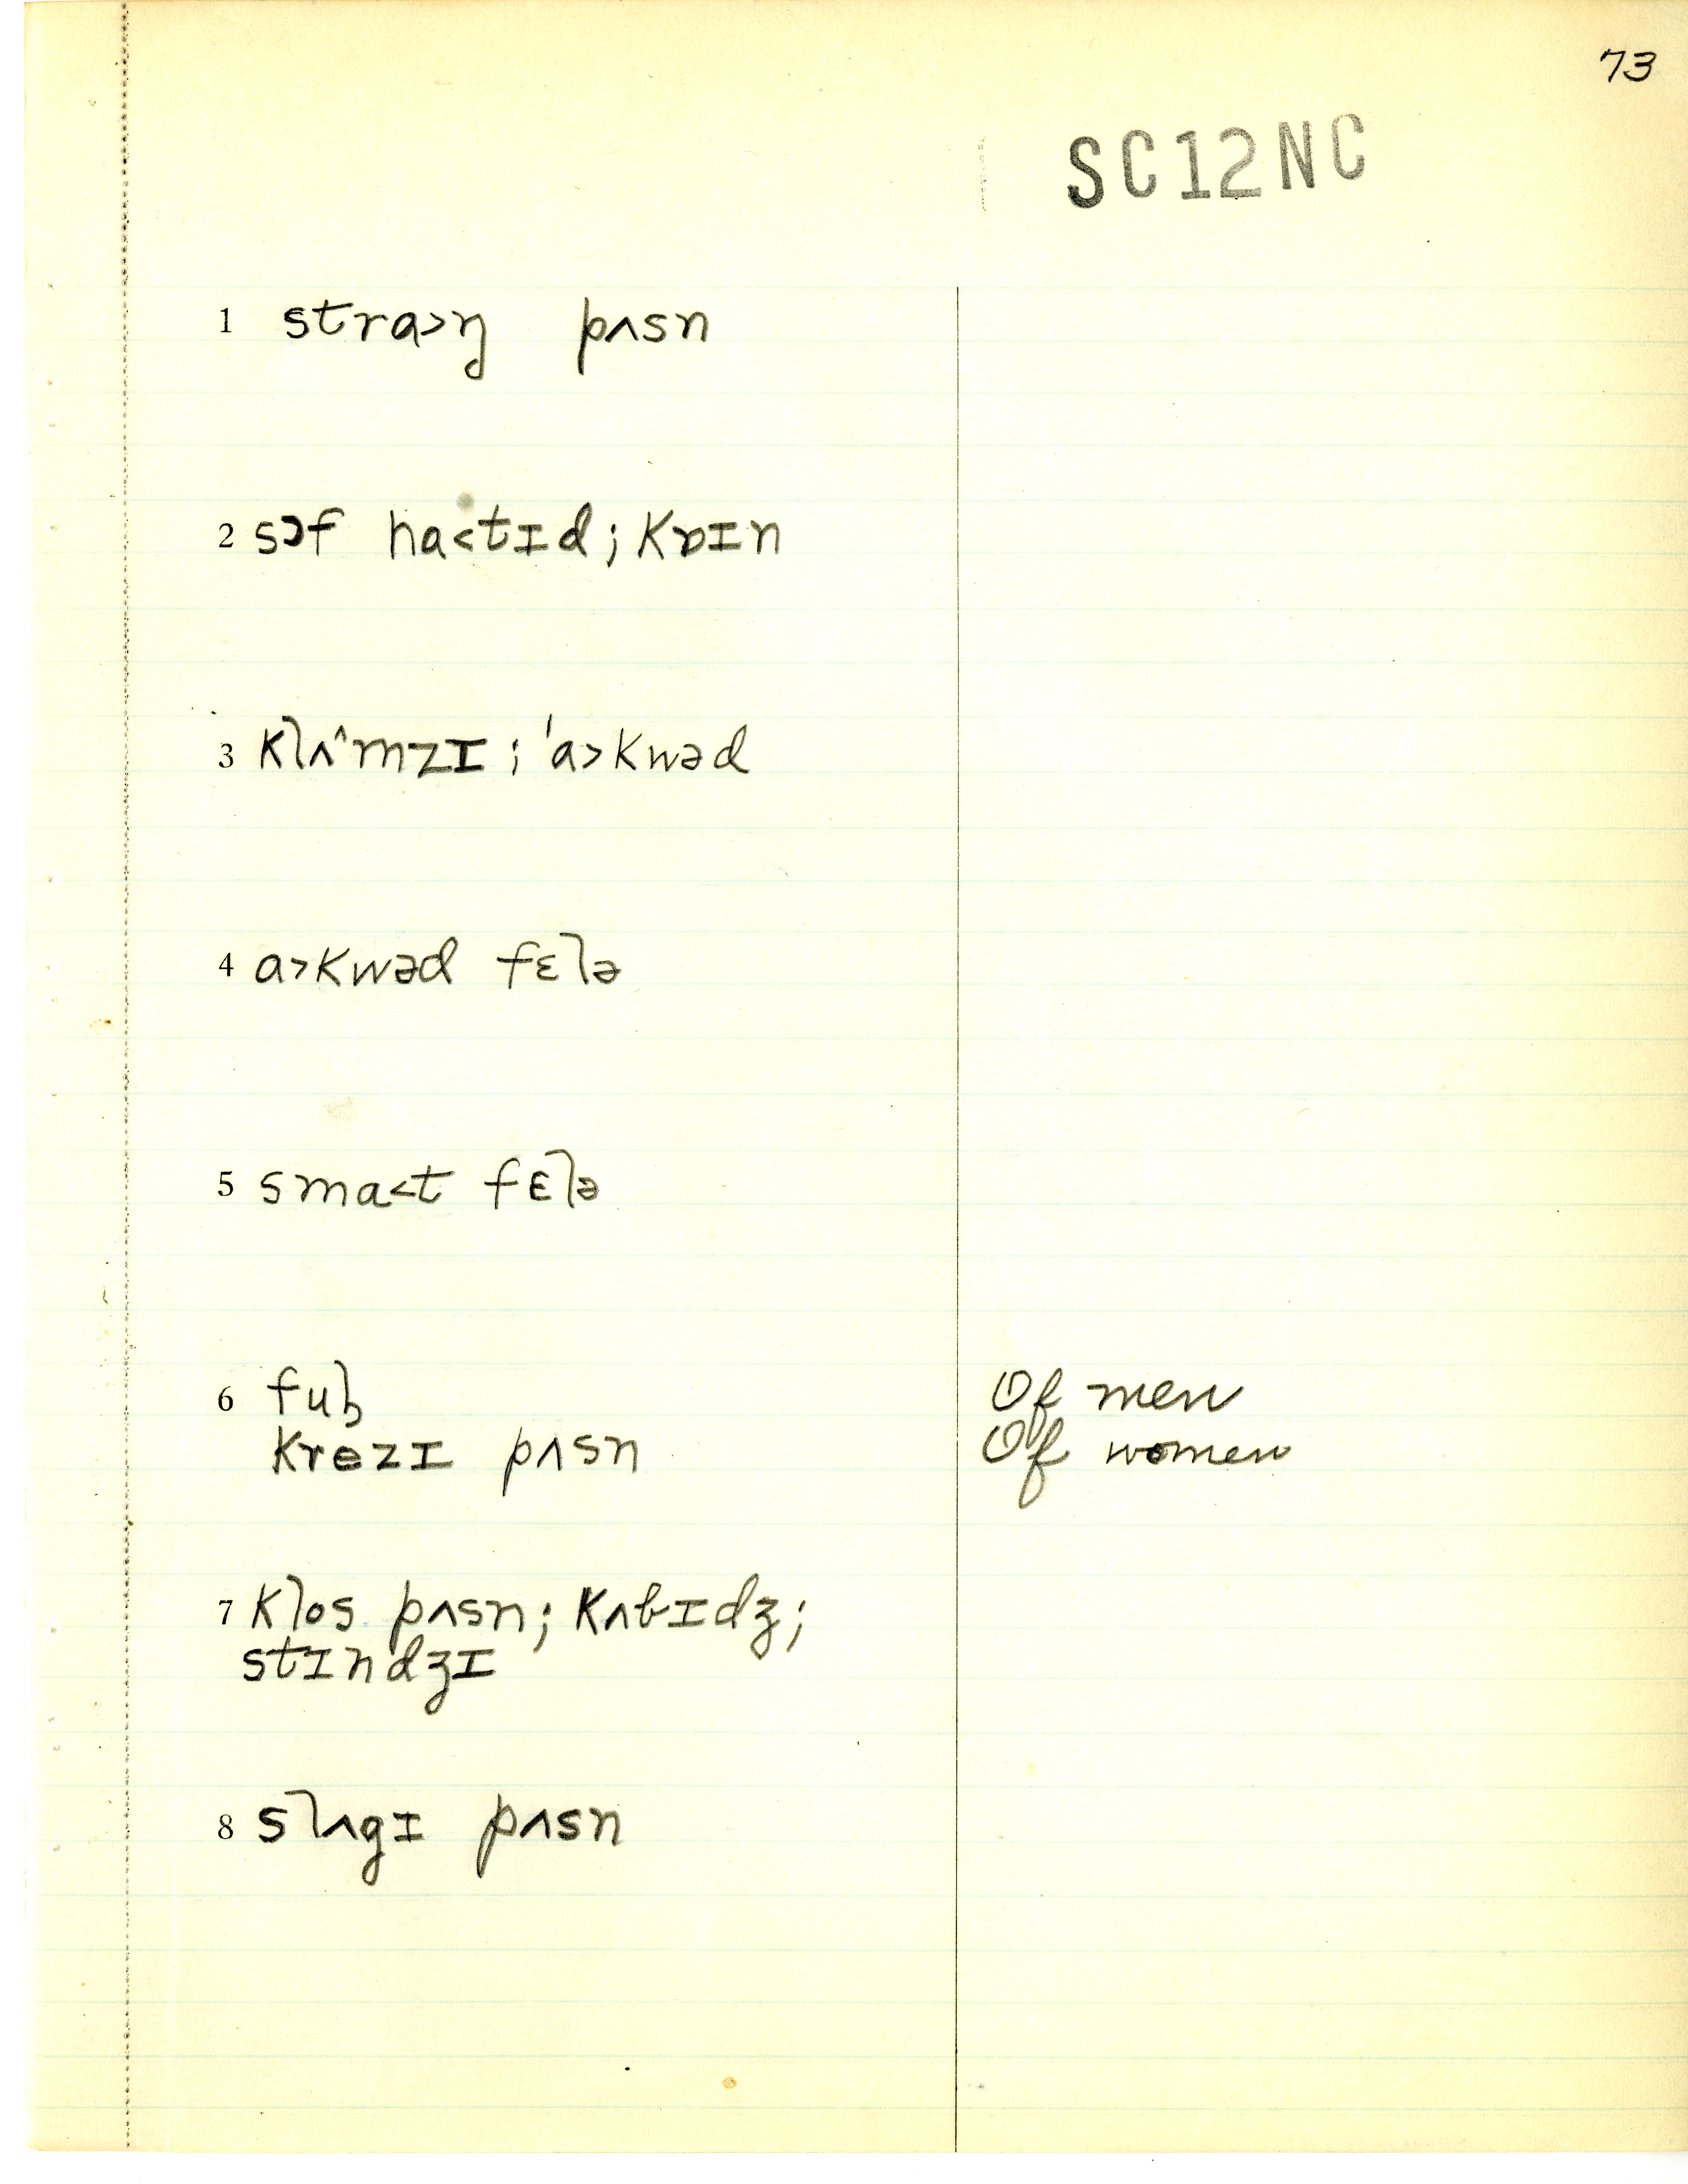 73
SC12NC
1 stra>ŋ pʌsn
2 sɔf ha<tɪd; kɒɪn
3 klʌ^mzɪ; 'a>kwəd
4 a>kwəd fɛlə
5 sma<t fɛlə
6 ful̩ Of men
krezɪ pʌsn Of women
7 klos pʌsn; kʌbɪdʒ;
stɪndʒɪ
8 slʌgɪ pʌsn